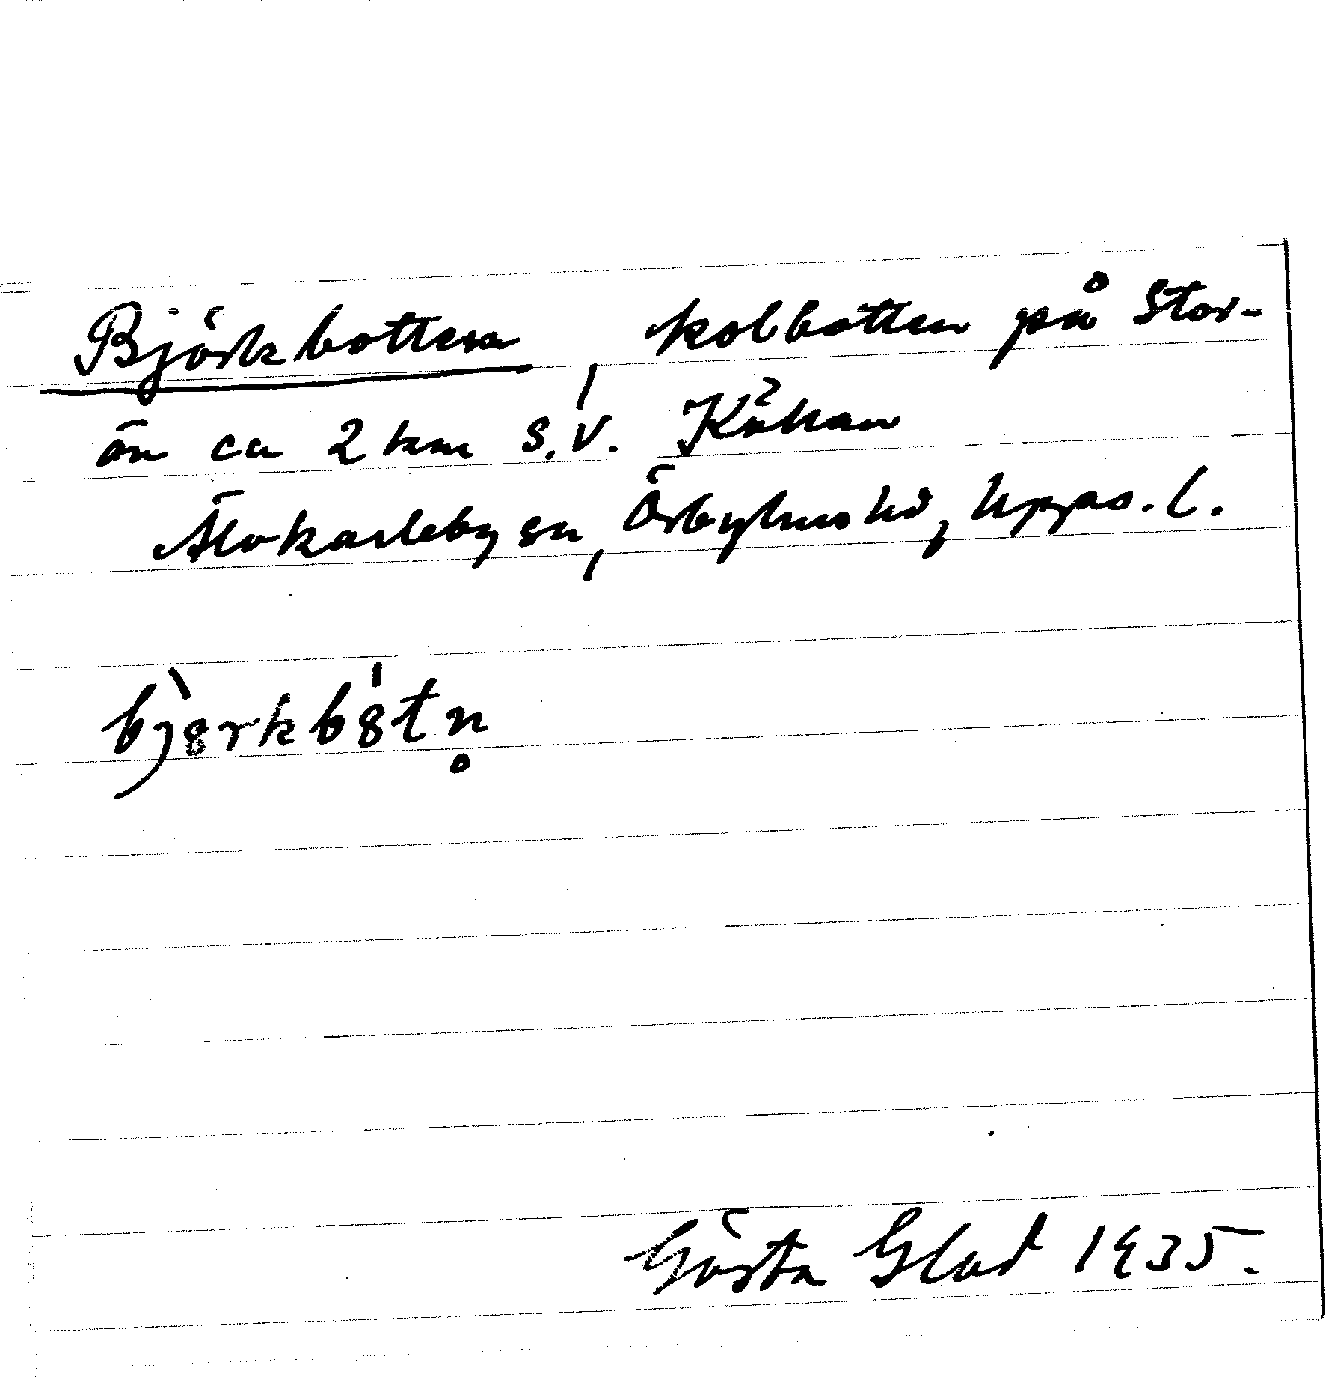 Björkbotten, kolbotten på Stor-
ön ca 2 km S.V. Kåhan
Älvkarleby sn, Örbyhus hd, Upps. l.
bjørkbøtn̥
Gösta Glad 1935.